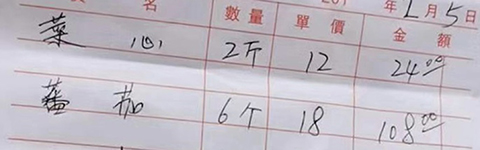 名 數量 單價 201 年 1月5日 金額
菜心 2斤 12 24.00
蕃茄 6个 18 108.00